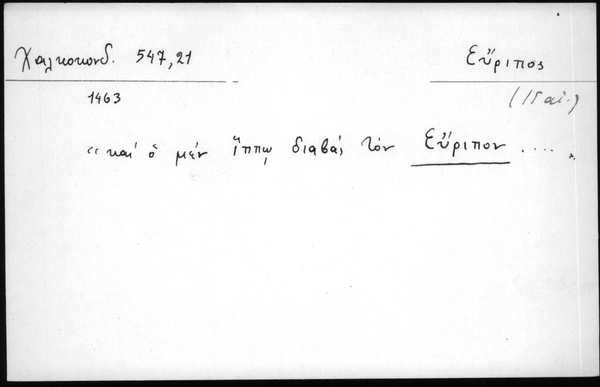 Χαλκοκονδ. 547,21
Εὔριπος
1463
(15 αἰ.)
"καὶ ὁ μὲν ἵππῳ διαβὰς τὸν Εὔριπον ....„